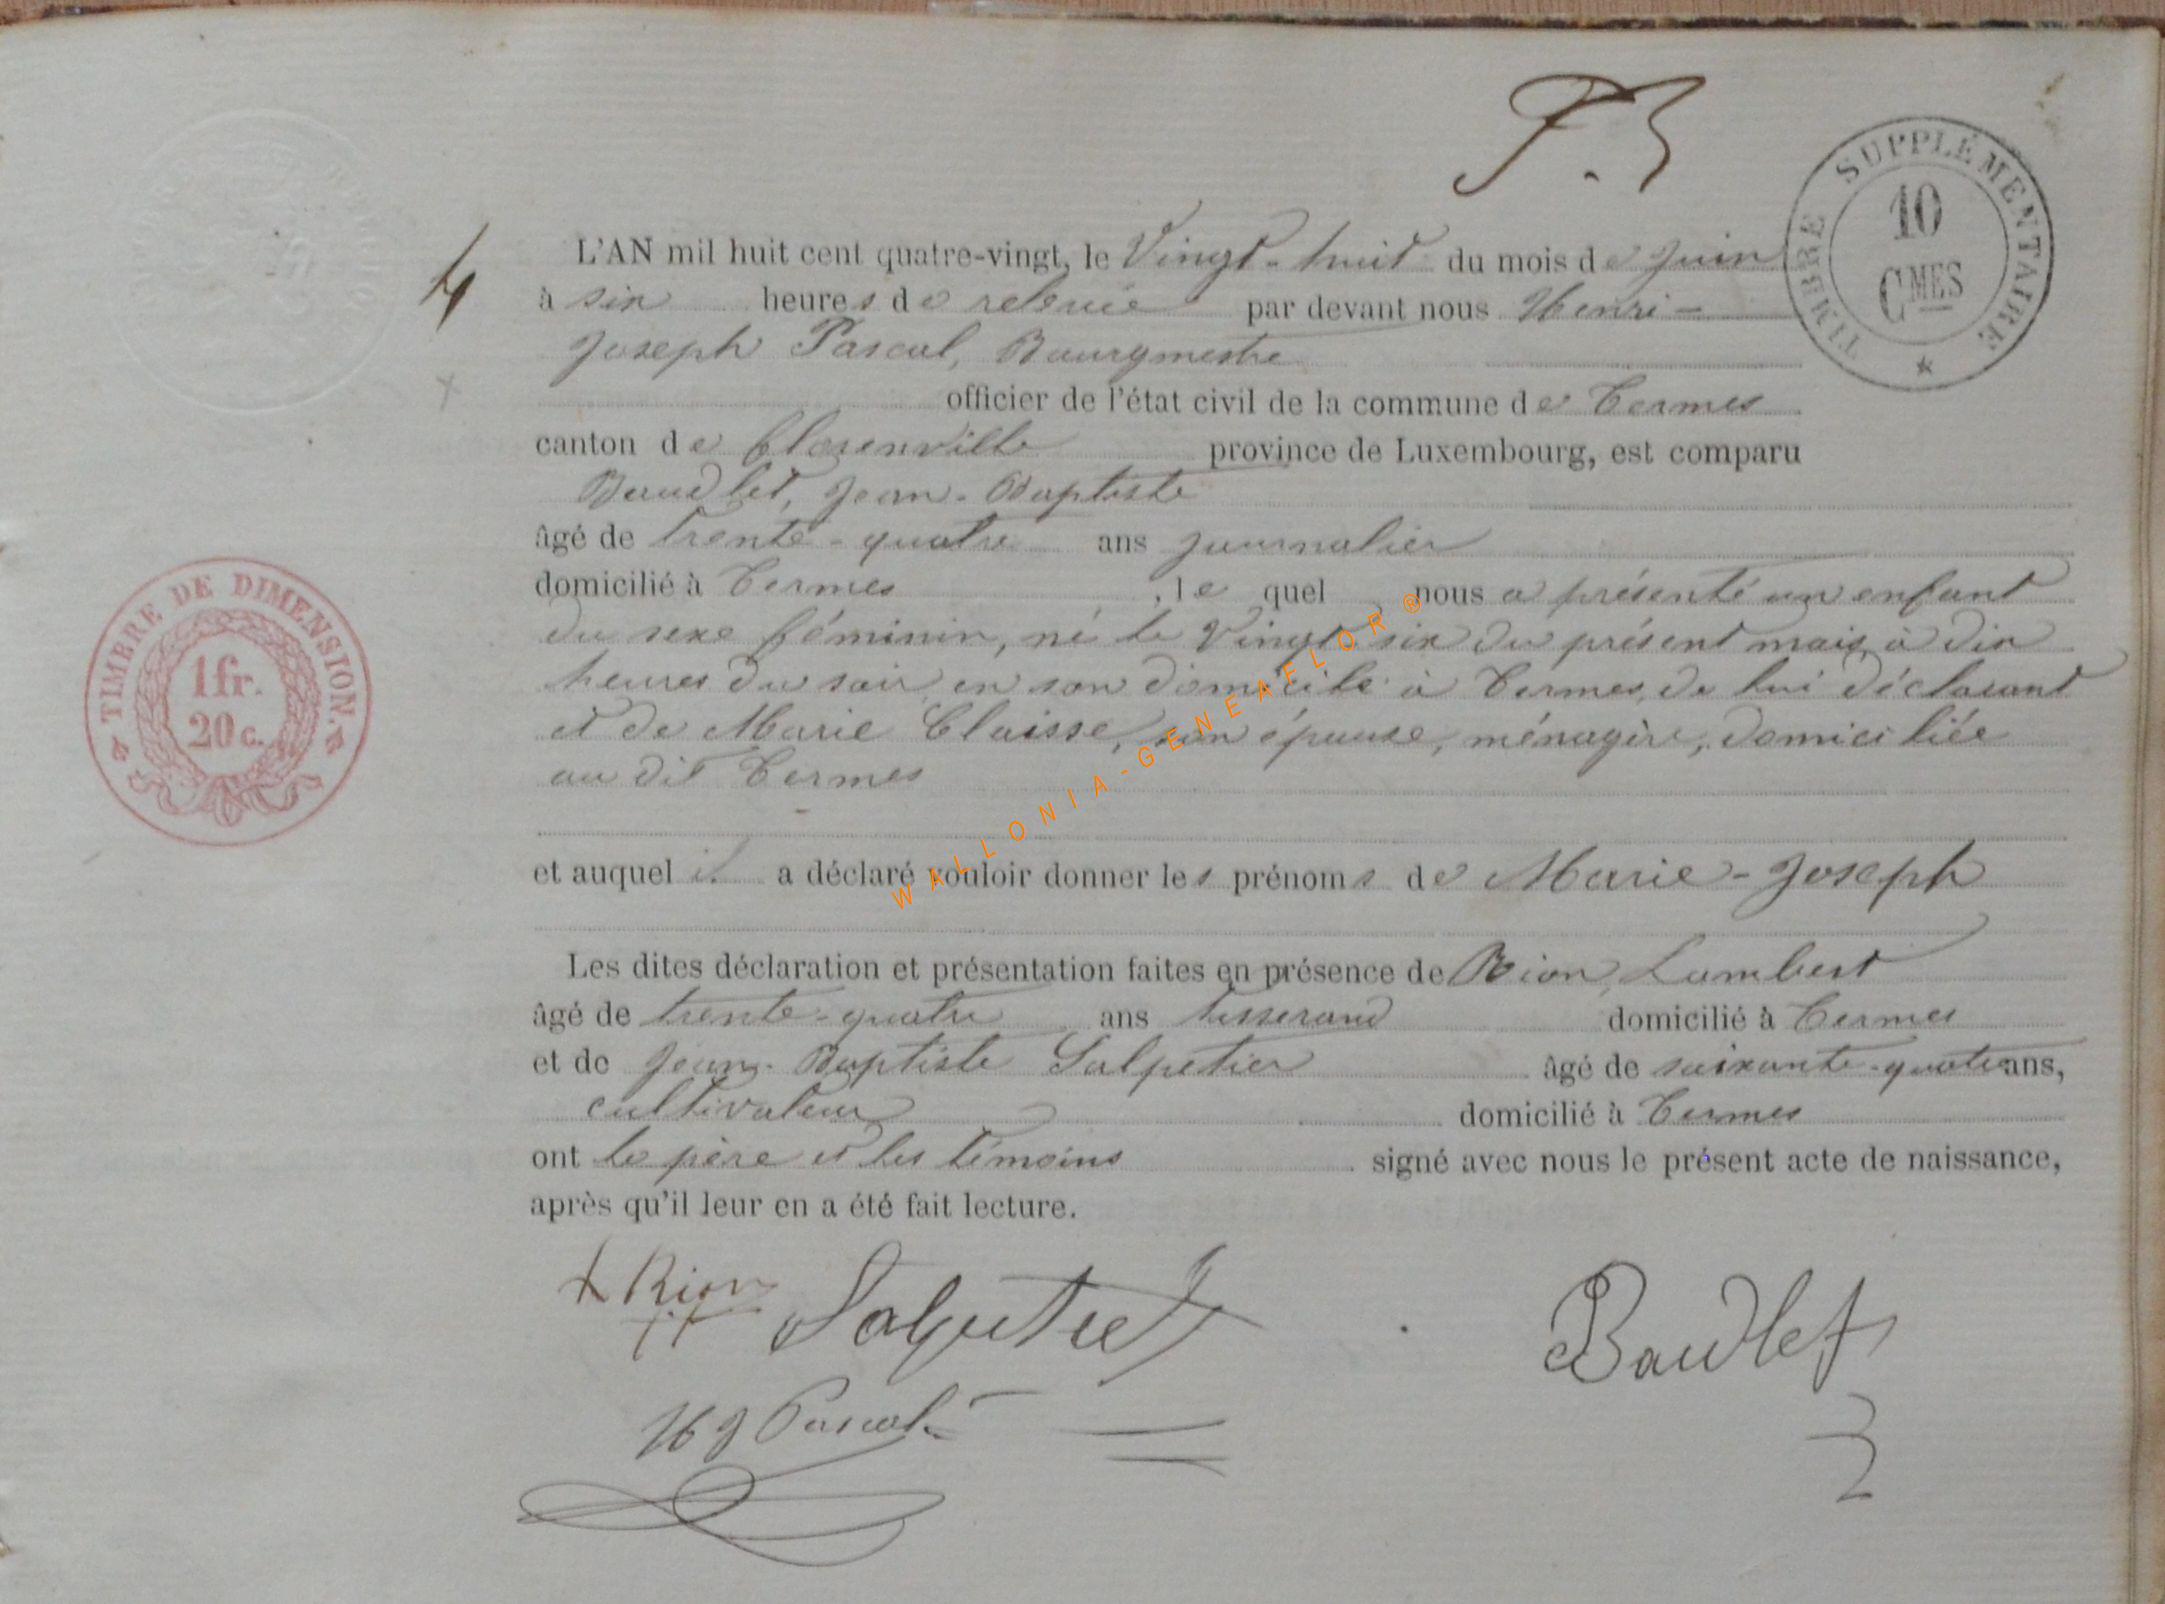 F. 3
TIMBRE SUPPLÉMENTAIRE
10
CMES
4
L'AN mil huit cent quatre-vingt, le Vingt-huit du mois de Juin
à six heures de relevée par devant nous Henri-
Joseph Pascal, Bourgmestre
officier de l'état civil de la commune de Termes
canton de Florenville province de Luxembourg, est comparu
Baudlet, Jean-Baptiste
âgé de trente-quatre ans journalier
domicilié à Termes, le quel nous a présenté un enfant
du sexe féminin, né le Vingt six du présent mois, à dix
heures du soir, en son domicile à Termes, de lui déclarant
et de Marie Claisse, son épouse, ménagère, domiciliée
au dit Termes
et auquel il a déclaré vouloir donner les prénoms de Marie-Joseph
Les dites déclaration et présentation faites en présence de Rion, Lambert
âgé de trente-quatre ans tisserand domicilié à Termes
et de Jean-Baptiste Salpetier âgé de soixante-quatre ans,
cultivateur domicilié à Termes
ont le père et les témoins signé avec nous le présent acte de naissance,
après qu'il leur en a été fait lecture.
Rion
Baudlet
HJ Pascal
TIMBRE DE DIMENSION.
1 fr.
20 c.
WALLONIA-GENEAFLOR ®